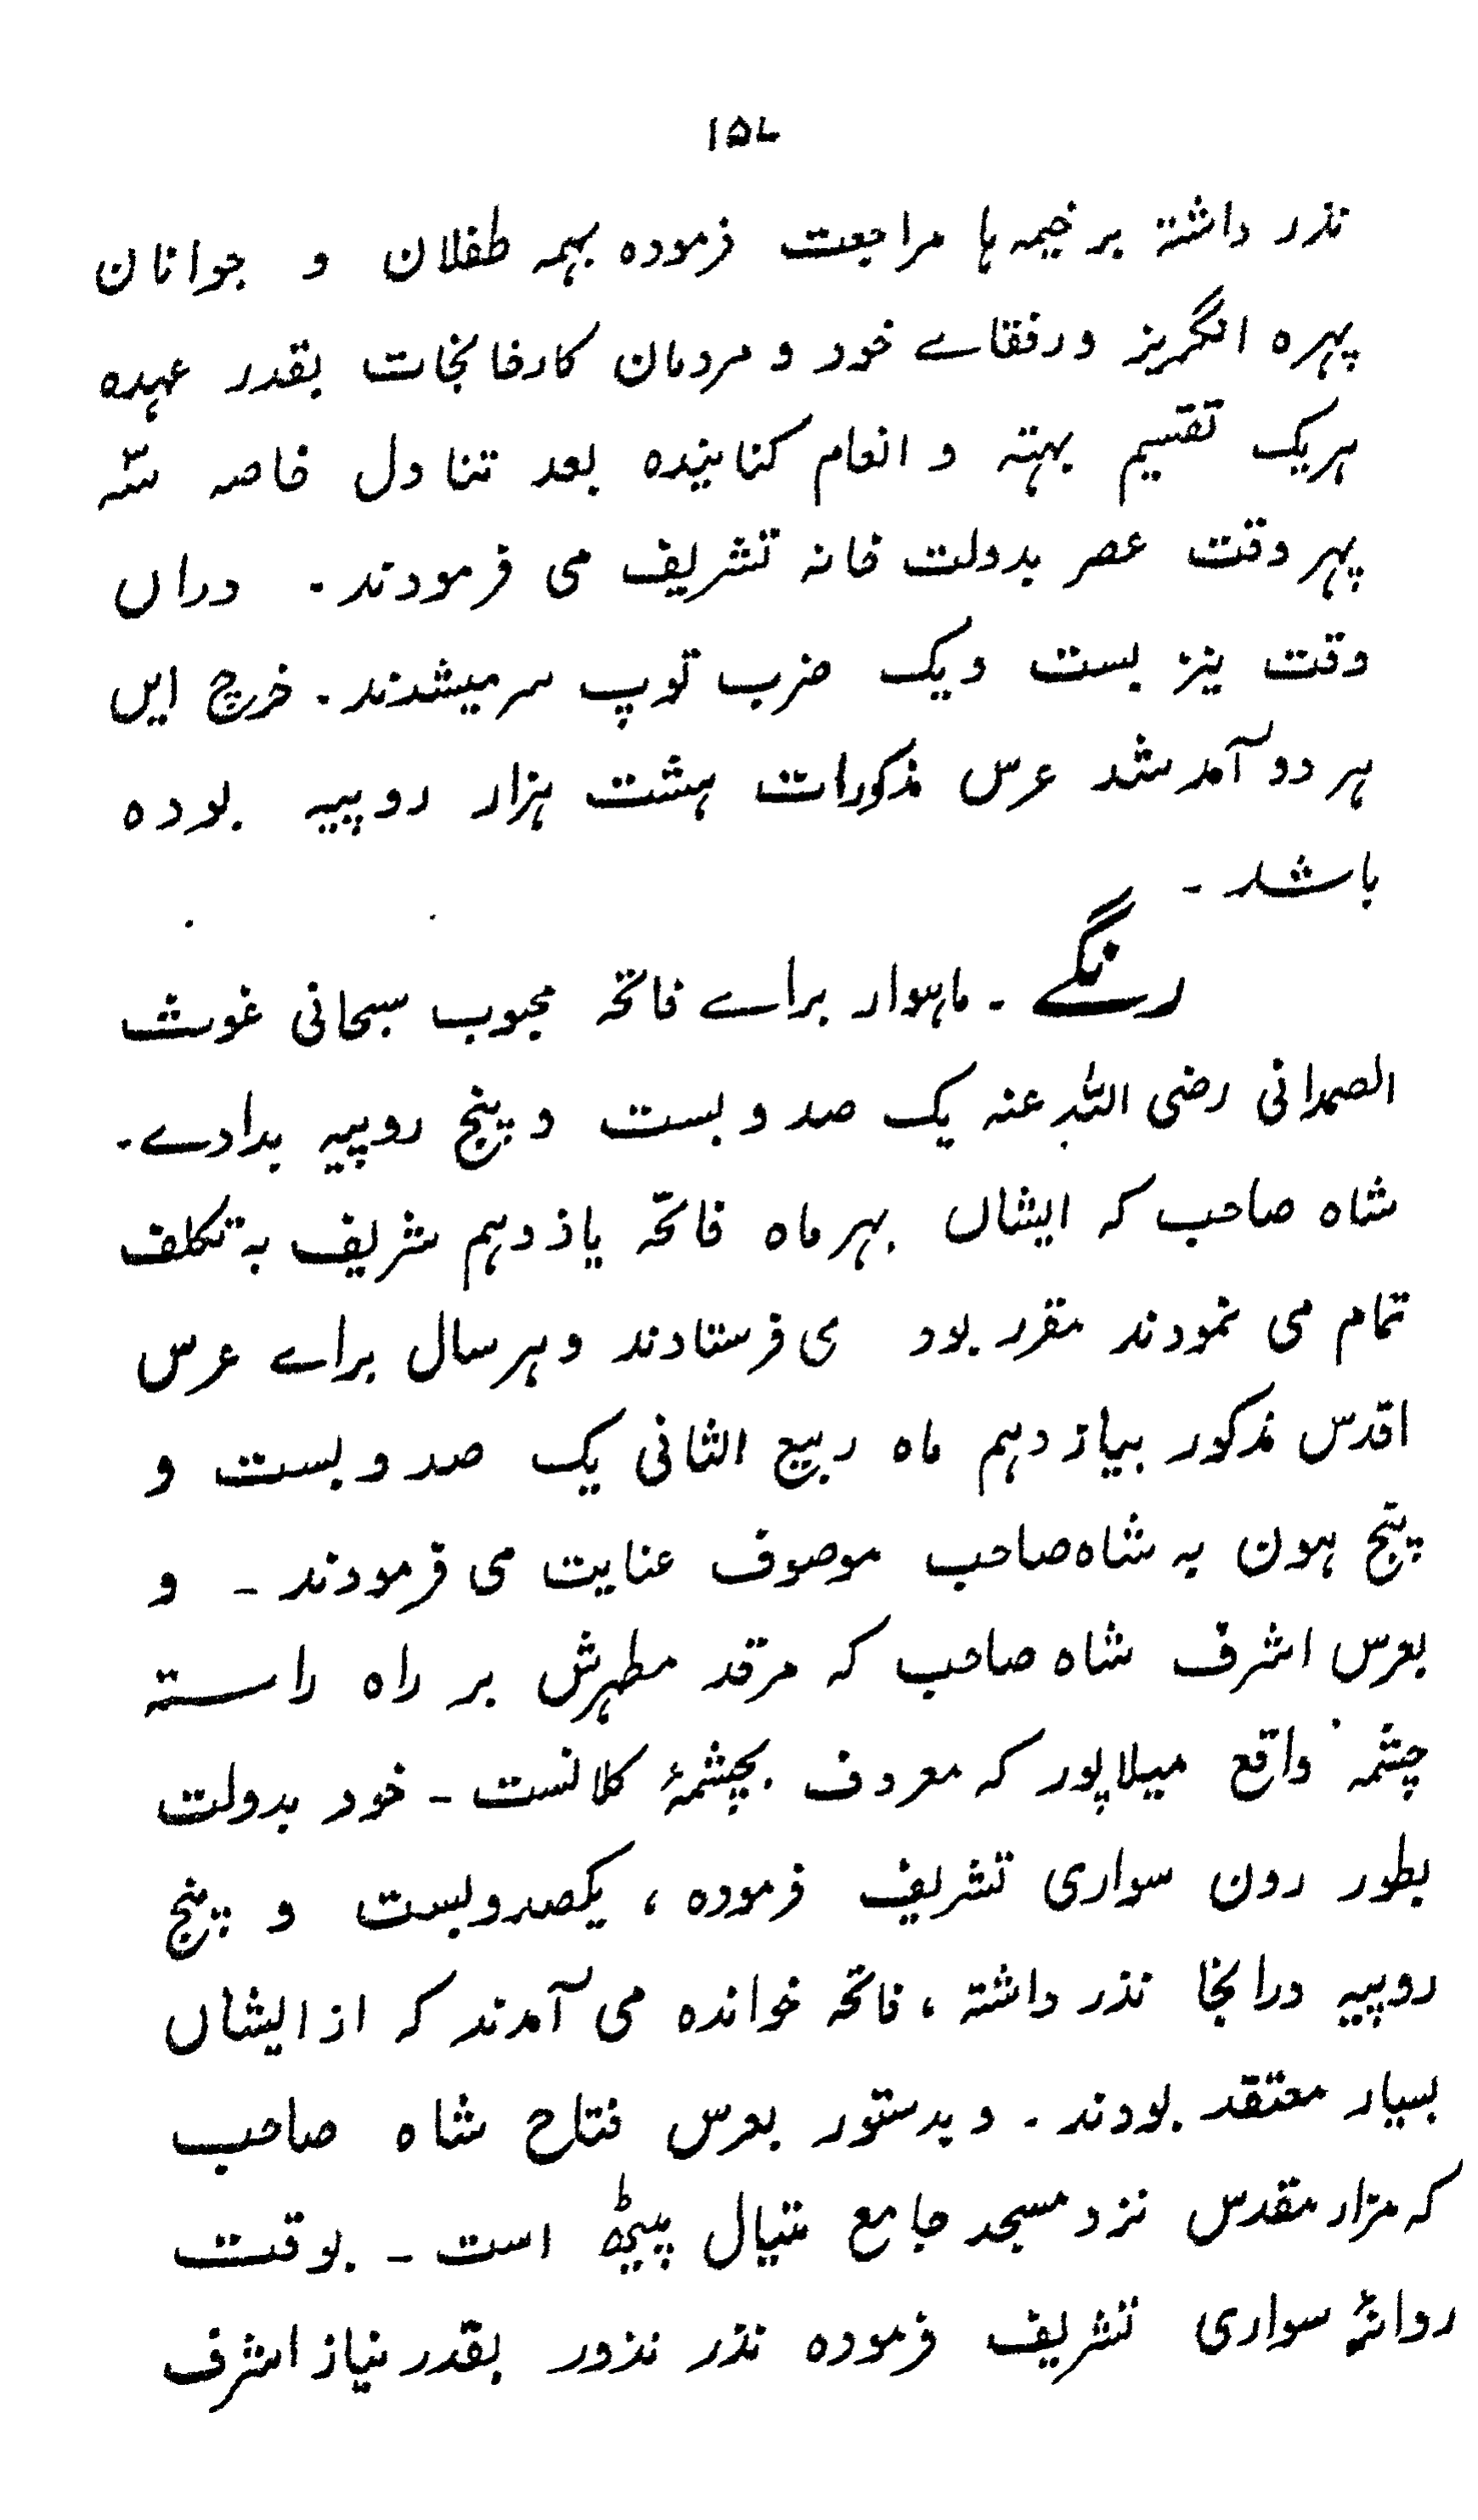 ۱۵۷
نذر داشتہ بر خیمہ ہا مراجعت فرمودہ بہمہ طفلان و جوانان
پہرہ انگریز و رفقاے خود و مردمان کارخانجات بقدر عہدہ
ہریک تقسیم بہتہ و انعام کنانیدہ بعد تناول خاصہ سہ
پہر وقت عصر بدولت خانہ تشریف می فرمودند۔ دراں
وقت نیز بست و یک ضرب توپ سرمیشدند۔ خرچ ایں
ہر دو آمد شد عرس مذکورات ہشت ہزار روپیہ بودہ
باشد۔
رنگے۔ ماہوار براے فاتحہ محبوب سبحانی غوث
الصمدانی رضی اللہ عنہ یک صد و بست و پنج روپیہ بدادے۔
شاہ صاحب کہ ایشاں بہر ماہ فاتحہ یازدہم شریف بہ تکلف
تمام می نمودند مقرر بود می فرستادند و ہر سال براے عرس
اقدس مذکور بیازدہم ماہ ربیع الثانی یک صد و بست و
پنج ہون بہ شاہ صاحب موصوف عنایت می فرمودند۔ و
بعرس اشرف شاہ صاحب کہ مرقد مطہرش بر راہ راستہ
چشمہ واقع میلاپور کہ معروف بچشمۂ کلانست۔ خود بدولت
بطور رون سواری تشریف فرمودہ، یکصد و بست و پنج
روپیہ درانجا نذر داشتہ، فاتحہ خواندہ می آمدند کہ از ایشاں
بسیار معتقد بودند۔ و بدستور بعرس فتاح شاہ صاحب
کہ مزار مقدس نزد مسجد جامع متیال پیٹھ است۔ بوقت
روانۂ سواری تشریف فرمودہ نذر نذور بقدر نیاز اشرف